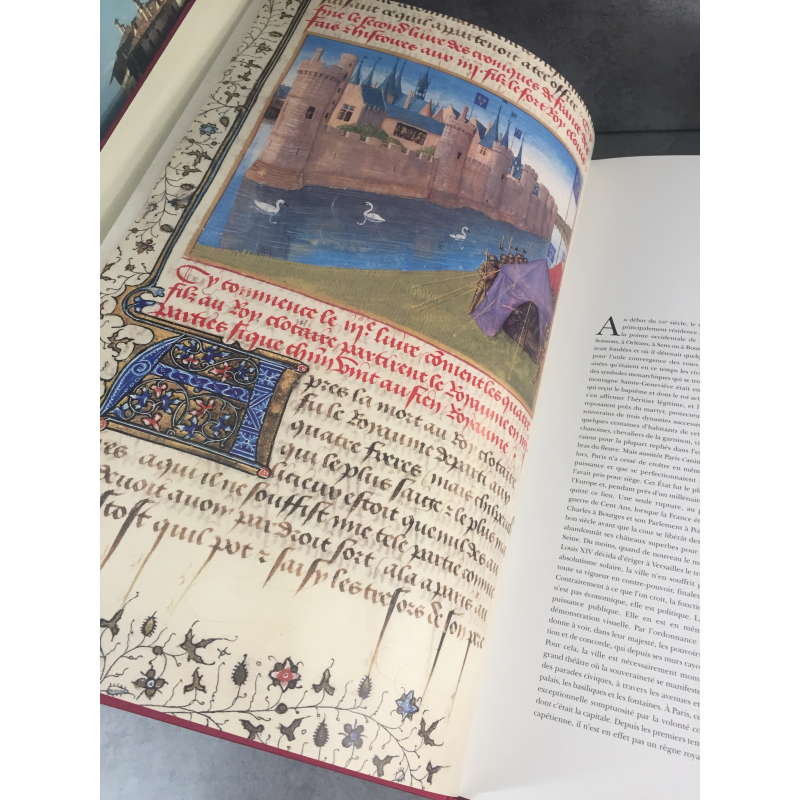 uisant ce quil appartenoit a cel office
fine le second livre des croniques de france
fais z histoires aux iiij filz le fort Roy clotaire
Cy commence le iije livre coment les quatre
filz au Roy clotaire partirent le Royaume en iiij
parties si que chun vint au sien Royaume
Apres la mort au Roy clotaire
fu le Royaume departi aux
quatre freres mais chilperic
qui le plus saige z le plus ma
licieux estoit que nul des au
tres a qui il ne souffist mie tele partie comme
devoit avoir par droit sort ala a paris au
tost quil pot z saisy les tresors de son pere
Au début du XIIe siècle, le
principalement résidence
la pointe occidentale de
Soissons, à Orléans, à Sens ou à Bour
avait fondées et où il détenait quelq
pour l'utile convergence des voies
aînées qu'étaient en ce temps les rivi
des symboles monarchiques qui se tro
montagne Sainte-Geneviève était en
qui reçu le baptême et dont le roi act
s'en affirmer l'héritier légitime, et l
reposaient près du martyr, protecteur
souverains de trois dynasties successi
quelques centaines d'habitants de cet
chanoines, chevaliers de la garnison, vi
vaient pour la plupart repliés dans l'en
bras du fleuve. Mais aussitôt Paris s'anim
lors, Paris n'a cessé de croître en mêm
puissance et que se perfectionnaient
l'avait pris pour siège. Cet État fut le pl
l'Europe et, pendant près d'un millénaire
quitté ce lieu. Une seule rupture, au
guerre de Cent Ans, lorsque la France ét
Charles à Bourges et son Parlement à Po
bon siècle avant que la cour se libérât des
abandonnât ses châteaux superbes pour
Seine. Du moins, quand de nouveau le m
Louis XIV décida d'ériger à Versailles le tr
absolutisme solaire, la ville n'en souffrit p
toute sa vigueur en contre-pouvoir, finalem
Contrairement à ce que l'on croit, la fonctio
n'est pas économique, elle est politique. L
puissance publique. Elle en est en mêm
démonstration visuelle. Par l'ordonnance
donne à voir, dans leur majesté, les pouvoir
tion et de concorde, qui depuis ses murs rayo
Pour cela, la ville est nécessairement monu
grand théâtre où la souveraineté se manifeste
des parades civiques, à travers les avenues et
palais, les basiliques et les fontaines. À Paris, ce
exceptionnelle somptuosité par la volonté co
dont c'était la capitale. Depuis les premiers tem
capétienne, il n'est en effet pas un règne roya